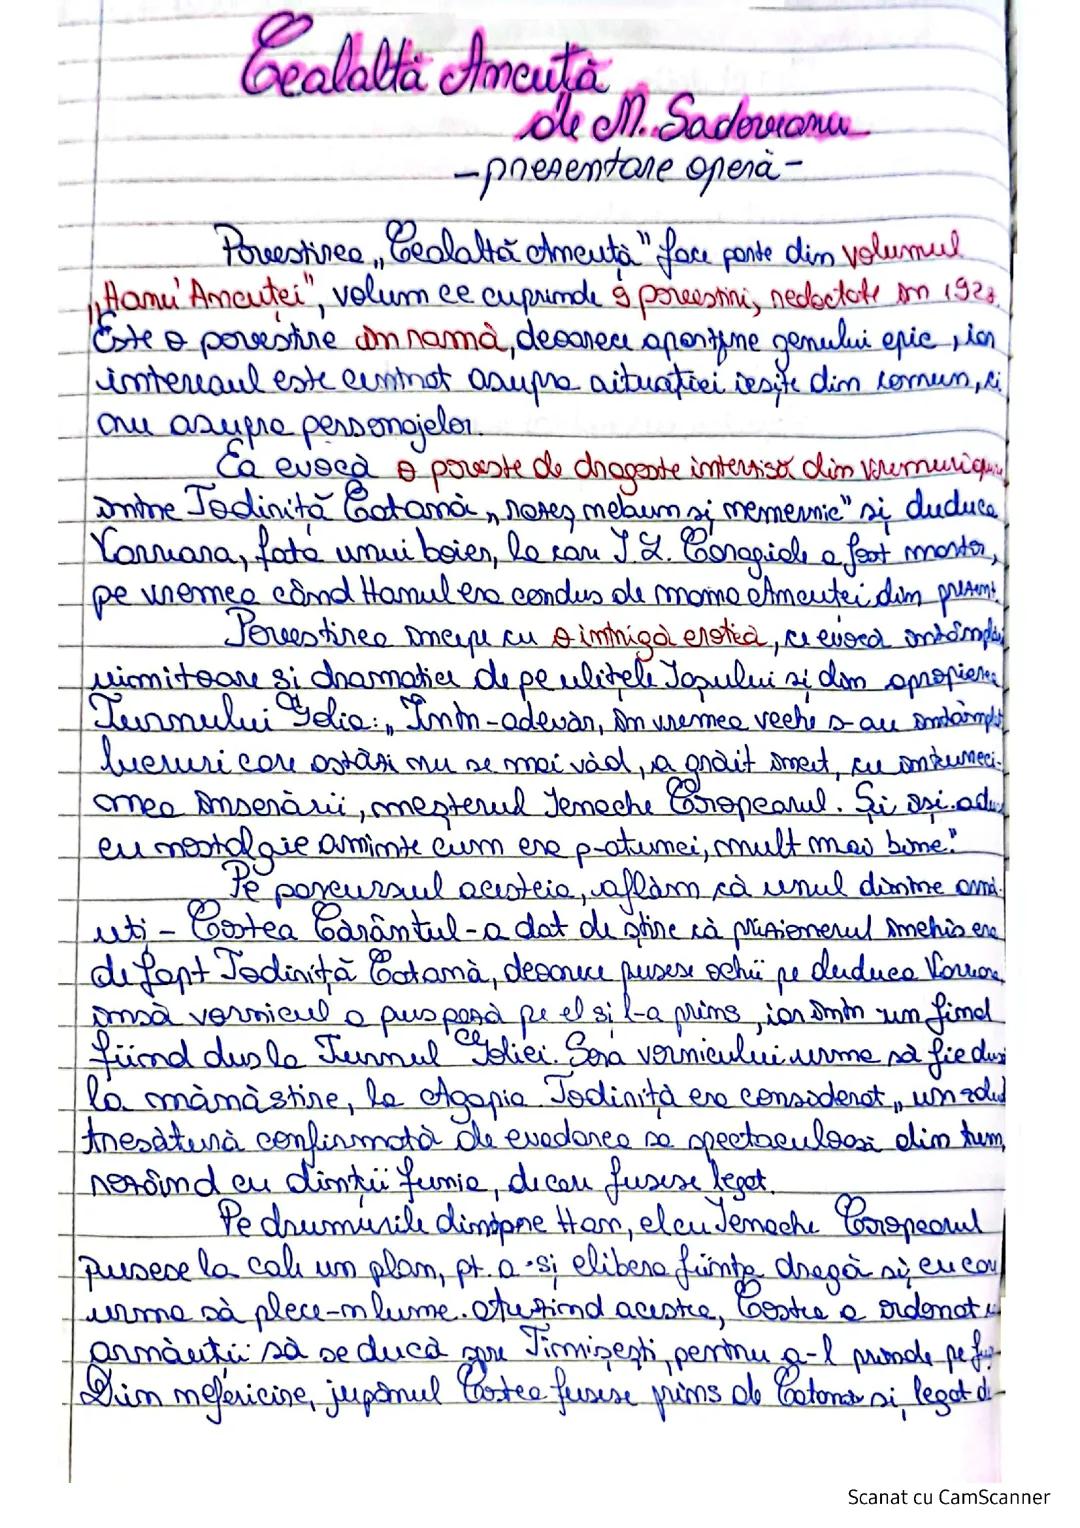 Cealaltă Ancuță
de M. Sadoveanu
- prezentare operă -
Povestirea „Cealaltă Ancuță" face parte din volumul
„Hanu' Ancuței", volum ce cuprinde 9 povestiri, redactate în 1928.
Este o povestire în ramă, deoarece aparține genului epic, iar
interesul este centrat asupra situației ieșite din comun, și
nu asupra personajelor.
Ea evocă o poveste de dragoste interzisă din vremuri
între Todiriță Catană, „răzeș nebun și nemernic" și duduca
Varvara, fata unui boier, la care I.L. Caragiale a fost martor,
pe vremea când Hanul era condus de mama Ancuței din prezent.
Povestirea începe cu o intrigă erotică, ce evocă întâmplări
uimitoare și dramatice de pe ulițele Iașului și din apropierea
Turnului Golia: „Într-adevăr, în vremea veche s-au întâmplat
lucruri care astăzi nu se mai văd, a grăit încet, cu întuneci-
mea înserării, meșterul Ienache Coropcarul. Și își aduc
cu nostalgie aminte cum era p-atunci, mult mai bine."
Pe parcursul acesteia, aflăm că unul dintre arnă-
uți - Costea Cărăntul - a dat de știre că prizonierul închis era
de fapt Todiriță Catană, deoarece pusese ochii pe duduca Varvara,
însă vornicul a pus pază pe el și l-a prins, iar într un final
fiind dus la Turnul Goliei. Sora vornicului urma să fie dusă
la mănăstire, la Agapia. Todiriță era considerat „un
trăsătură confirmată de evadarea sa spectaculoasă din turn,
rozând cu dinții funia, de care fusese legat.
Pe drumurile dinspre Han, el cu Ienache Coropcarul
pusese la cale un plan, pt. a-și elibera ființa dragă și cu care
urma să plece-n lume. Auzind acestea, Costea a ordonat
arnăuții să se ducă spre Timișești, pentru a-l prinde pe
Din nefericire, jupânul Costea fusese prins de Catană și legat de
Scanat cu CamScanner